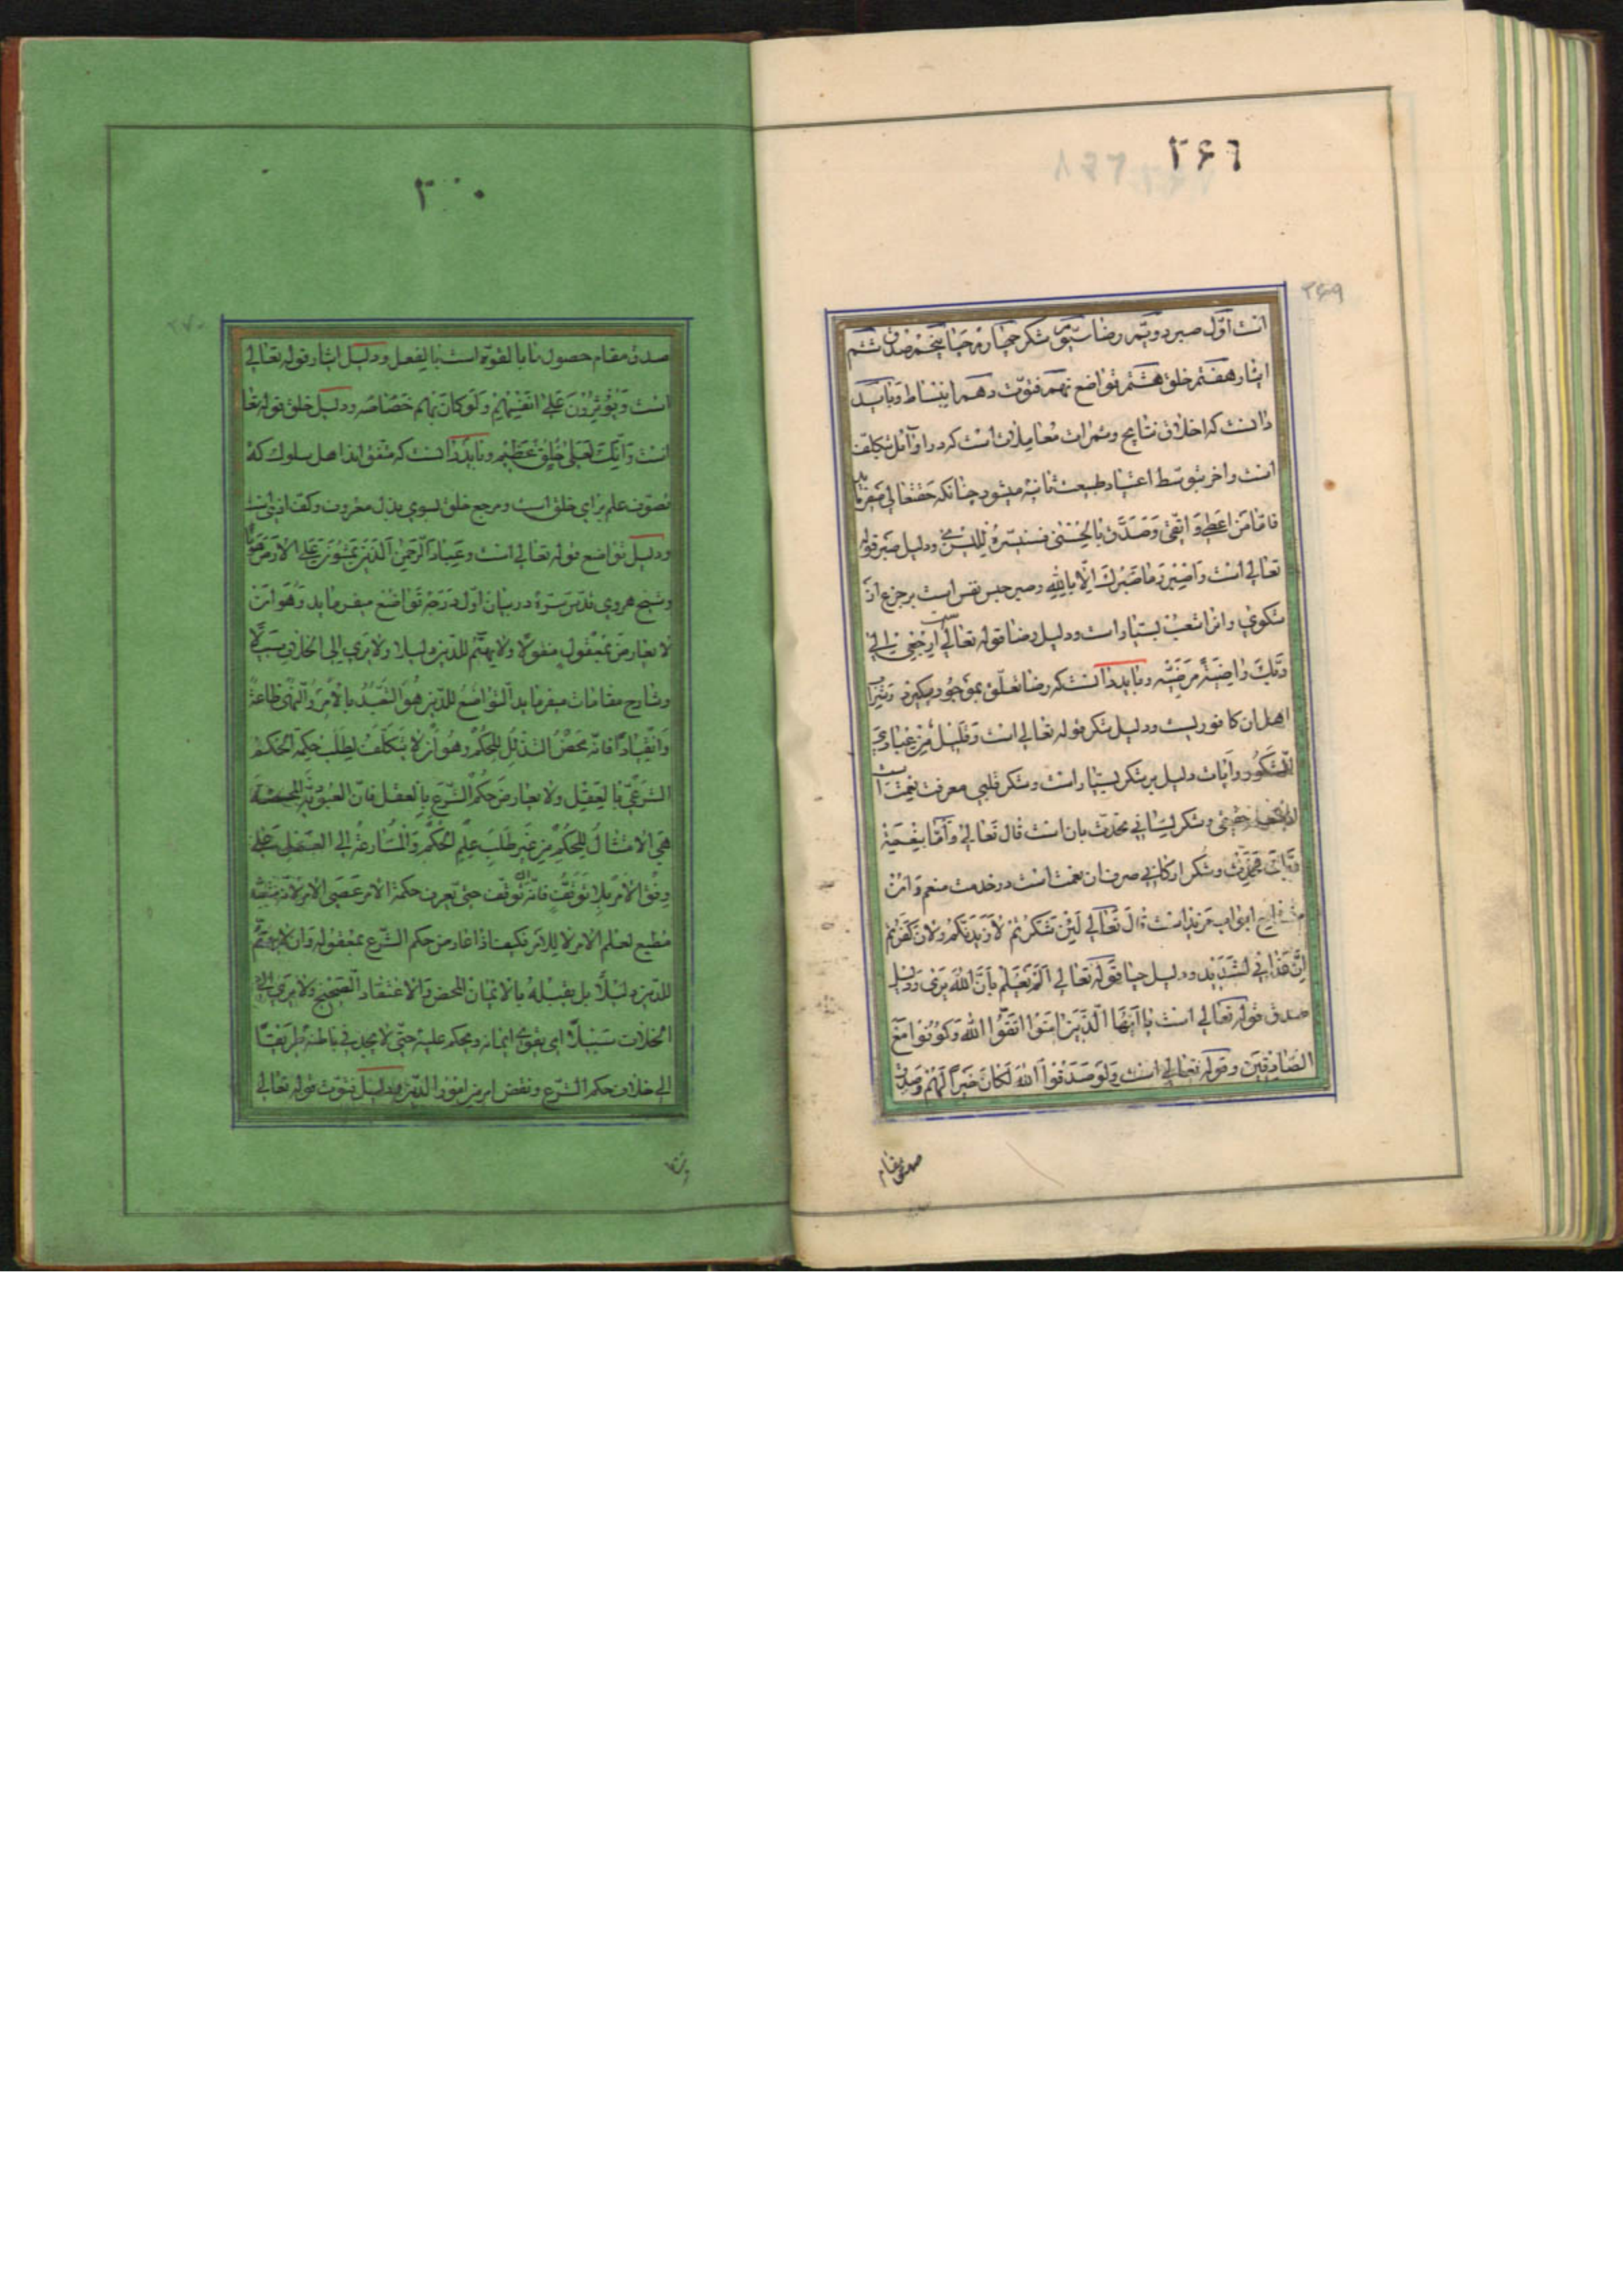 ۲۶۶
۲۶۹
است اوّل صبر دویّم رضا سیّم شکر چهارم حیا پنجم صدق ششم
ایثار هفتم خلق هشتم تواضع نهم فتوّت دهم انبساط و باید
دانست که اخلاق نتایج و ثمرات معاملات است که در اوایل بتکلّف
است و اخر بتوسّط اعتیاد طبیعت ثانیه میشود چنانکه حقتعالی میفرماید
فَامّا مَن اعطی وَ اتّقی وَ صَدَّقَ بِالحُسنی فَسَنُیَسِّرُهُ لِلیُسری و دلیل صبر قوله
تعالی است وَ اصبِر وَ ما صَبرُکَ اِلّا بِاللّهِ و صبر حبس نفس است بر جزع از
شکوی و انرا شعب بسیار است و دلیل رضا قوله تعالی ارجِعی اِلی
رَبِّکِ راضِیَةً مَرضِیَّة و باید دانست که رضا تعلّق بموجود میگیرد و شراب
اهل ان کافوریست و دلیل شکر قوله تعالی است وَ قَلیلٌ مِن عِبادِیَ
الشَّکُور و آیات دلیل بر شکر بسیار است و شکر قلبی معرفت نعمت است
و شکر لسانی تحدّث بان است قال تعالی وَ اَمّا بِنِعمَةِ
رَبِّکَ فَحَدِّث و شکر ارکانی صرف ان نعمت است در خدمت منعم و ان
ابواب مزید است قال تعالی لَئِن شَکَرتُم لَاَزیدَنَّکُم وَ لَاِن کَفَرتُم
اِنَّ عَذابی لَشَدید و دلیل حیا قوله تعالی اَلَم یَعلَم بِاَنَّ اللّهَ یَری و دلیل
صدق قوله تعالی است یا اَیُّهَا الَّذینَ امَنُوا اتَّقُوا اللّهَ وَ کُونُوا مَعَ
الصّادِقینَ و قوله تعالی است وَ لَو صَدَقُوا اللّهَ لَکانَ خَیراً لَهُم و صدق
صدق مقام
۳۰۰
۲۷۰
صدق مقام حصول نا بالقوّه است بالفعل و دلیل ایثار قوله تعالی
است وَ یُؤثِرُونَ عَلی اَنفُسِهِم وَ لَو کانَ بِهِم خَصاصَه و دلیل خلق قوله تعا
است وَ اِنَّکَ لَعَلی خُلُقٍ عَظیم و باید دانست که متّفق‌اند اهل سلوک که
تصوّف علم برای خلق است و مرجع خلق بسوی بذل معروف و کفّ اذی است
و دلیل تواضع قوله تعالی است وَ عِبادُ الرَّحمنِ الَّذینَ یَمشُونَ عَلَی الاَرضِ هَوناً
و شیخ هروی قدّس سرّه در بیان اوّل درجه تواضع میفرماید وَ هُوَ اَن
لا یعارض بمعقولٍ منقولاً ولا یتّهم للدّین دلیلا ولا یری الی الخلاف سبیلاً
و شارح مقامات میفرماید التّواضع للدّین هو التّعبّد بالامر و النّهی طاعةً
وَ انقیاداً فانّه محض التّذلّل للحکم و هو ان لا یتکلّف لطلب حکمة الحکم
الشّرعیّ بالعقل ولا یعارض حکم الشّرع بالعقل فانّ العبودیّة المحضة
هی الامتثال للحکم من غیر طلب علّم الحکم و المسارعة الی العمل علی
وفق الامر بلا توقّف فانّه ان توقّف حتی یعرف حکمة الامر عصی الامر لانّه حینئذ
مطیع لعلم الامر لا للامر فکیف اذا عارض حکم الشّرع بمعقوله وَ ان لا یتّهم
للدّین دلیلاً بل یقبله بالایمان المحض و الاعتقاد الصّحیح ولا یری الی
الخلاف سبیلاً ای یقوی ایمانه و یحکم علیه حتّی لا یجد فی باطنه طریقاً
الی خلاف حکم الشّرع و نقض امر من امور الدّین و دلیل فتوّت قوله تعالی